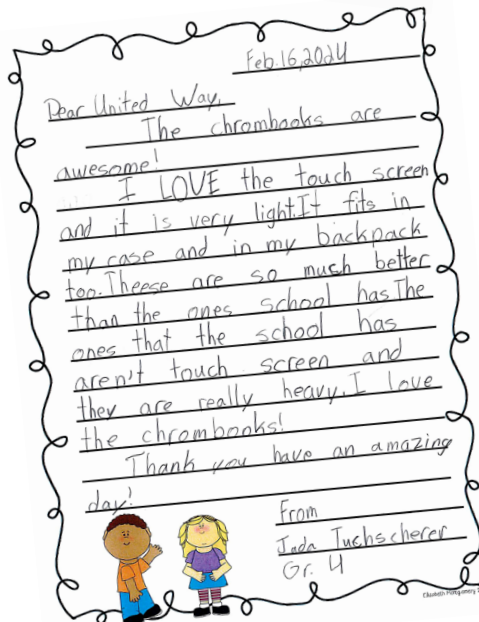 Feb.16,2024
Dear United Way,
The chrombooks are
awesome!
I LOVE the touch screen
and it is very light.It fits in
my case and in my backpack
too.Theese are so much better
than the ones school has.The
ones that the school has
aren't touch screen and
they are really heavy.I love
the chrombooks!
Thank you have an amazing
day!
From
Jada Tuchscherer
Gr. 4
Elizabeth Montgomery